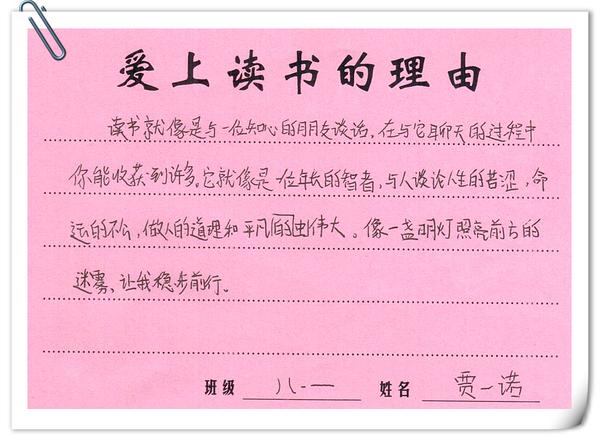 爱上读书的理由
读书就像是与一位知心的朋友谈话，在与它聊天的过程中
你能收获到许多。它就像是一位年长的智者，与人谈论人生的苦涩，命
运的不公，做人的道理和平凡的伟大。像一盏明灯照亮前方的
迷雾，让我稳步前行。
班级 八.一 姓名 贾一诺